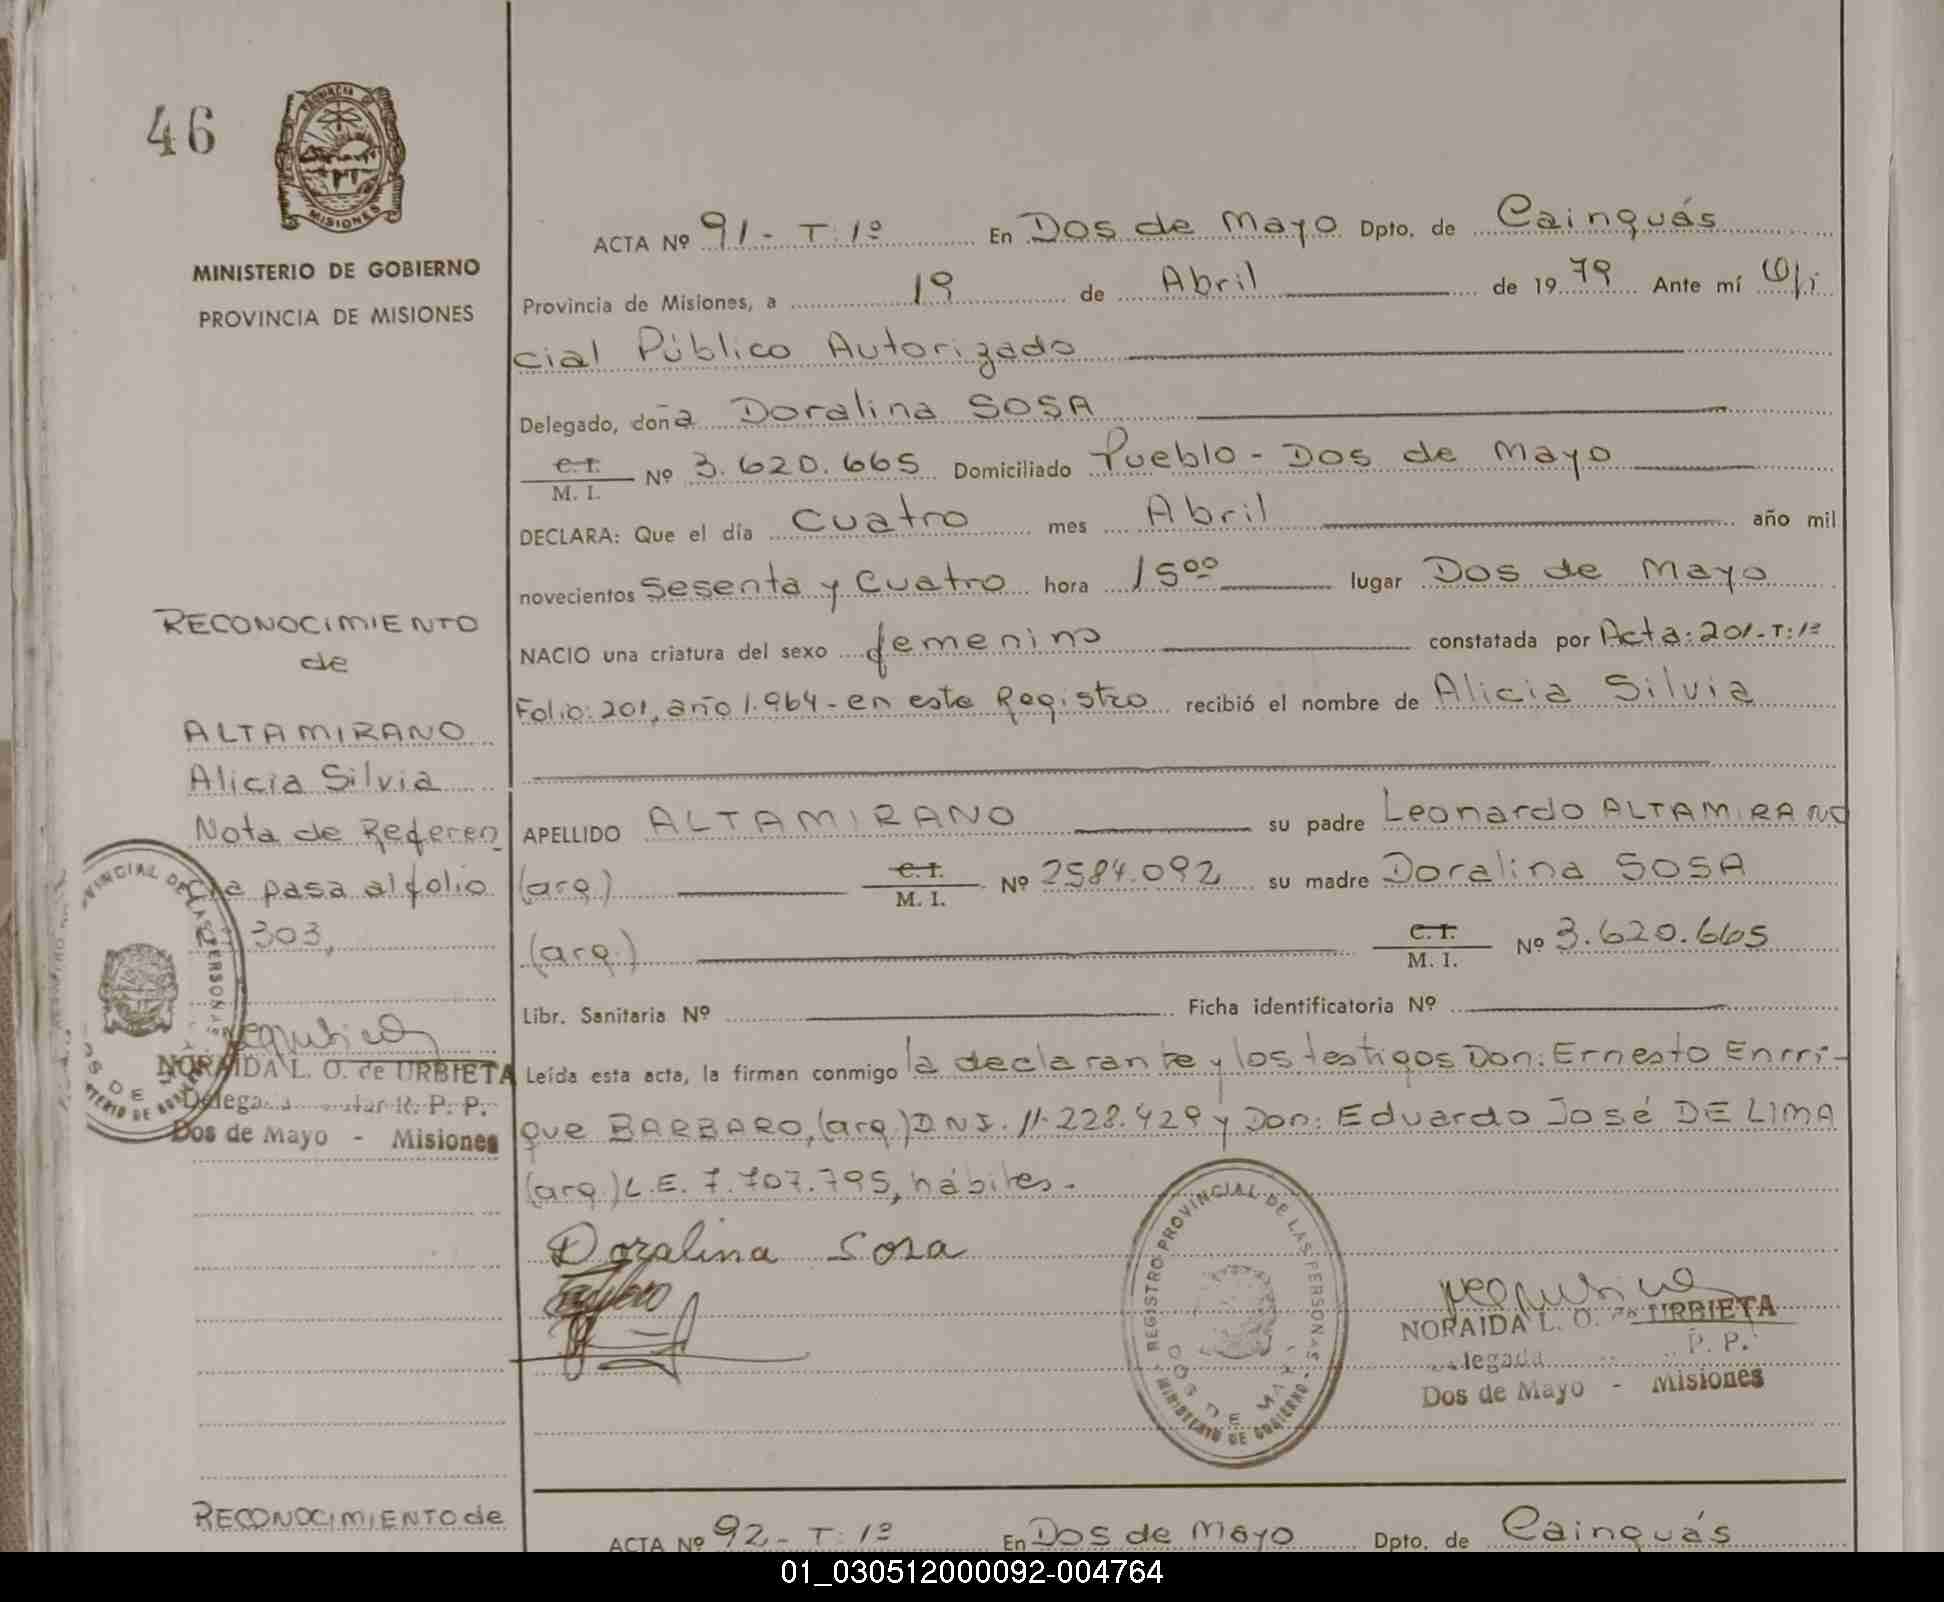 46
PROVINCIA DE
MISIONES
MINISTERIO DE GOBIERNO
PROVINCIA DE MISIONES
ACTA Nº 91- T:1º En Dos de Mayo Dpto. de Cainguás
Provincia de Misiones, a 19 de Abril de 1979 Ante mí Ofi
cial Público Autorizado
Delegado, doña Doralina SOSA
C. I.
M. I. Nº 3.620.665 Domiciliado Pueblo - Dos de Mayo
DECLARA: Que el día cuatro mes Abril año mil
novecientos Sesenta y Cuatro hora 15⁰⁰ lugar Dos de Mayo
NACIO una criatura del sexo femenino constatada por Acta:201-T:1º
Folio:201, año 1.964- en este Registro recibió el nombre de Alicia Silvia
RECONOCIMIENTO
de
ALTAMIRANO
Alicia Silvia
Nota de Referen
cia pasa al folio
303,
NORAIDA L. O. de URBIETA
R. P. P.
Dos de Mayo - Misiones
APELLIDO ALTAMIRANO su padre Leonardo ALTAMIRANO
(arg.) C. I. M. I. Nº 2584.092 su madre Doralina SOSA
(arg.) C. I. M. I. Nº 3.620.665
Libr. Sanitaria Nº Ficha identificatoria Nº
Leída esta acta, la firman conmigo la declarante y los testigos Don: Ernesto Enrri-
que BARBARO, (arg.) DNI. 11.228.429 y Don: Eduardo José DE LIMA
(arg.) L.E. 7.707.795, hábiles.
Doralina Sosa
REGISTRO PROVINCIAL DE LAS PERSONAS
DOS DE MAYO
MINISTERIO DE GOBIERNO
NORAIDA L. O. de URBIETA
P. P.
Dos de Mayo - Misiones
RECONOCIMIENTO de
ACTA Nº 92- T:1º En Dos de Mayo Dpto. de Cainguás
01_030512000092-004764